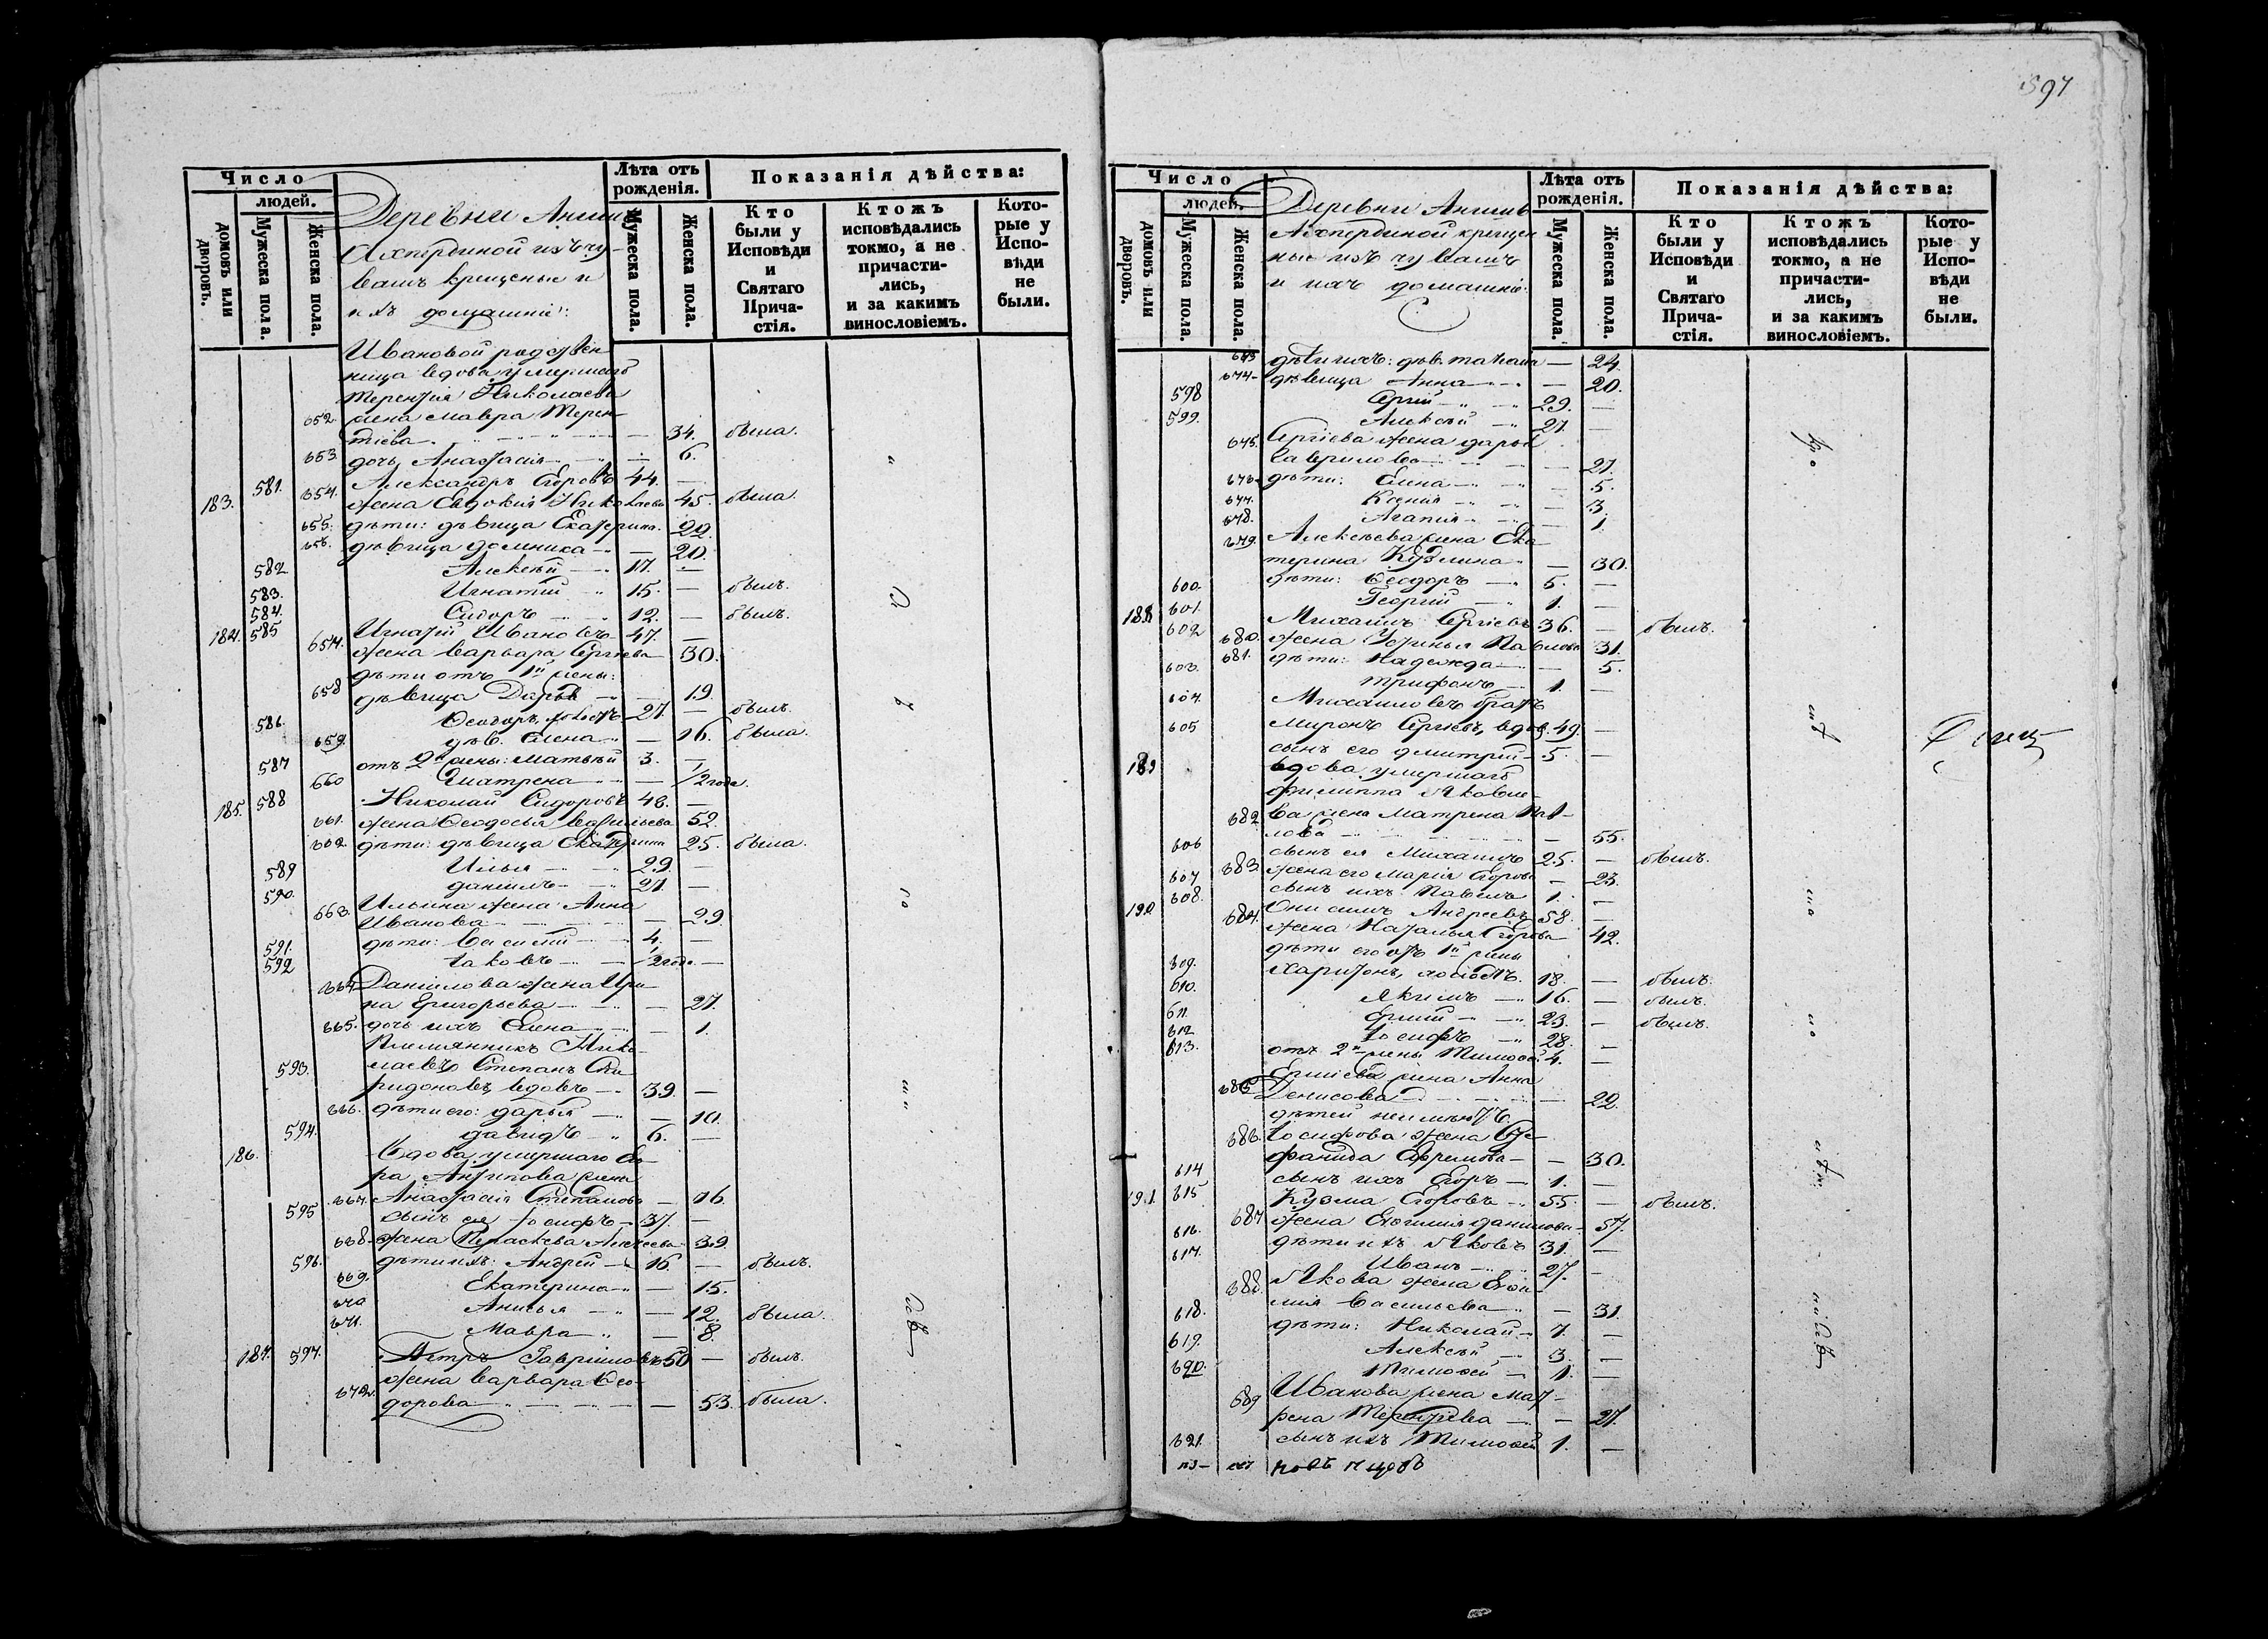 597
Число
людей.
домовъ или дворовъ.
Мужеска пола.
Женска пола.
Деревни
Ахпердиной изъ чу-
вашъ крещеные и
ихъ домашніе:
Лѣта отъ рожденія.
Мужеска пола.
Женска пола.
Показанія дѣйства:
Кто были у Исповѣди и Святаго Прича-стія.
Ктожъ исповѣдались токмо, а не причасти-лись, и за какимъ винословіемъ.
Кото-рые у Испо-вѣди не были.
Ивановой родствен-
ница вдова умершаго
Терентія Николаева
652. жена Мавра Терен-
тіева — 34. была.
653. дочь Анастасія — 6.
183. 581. Александръ Егоровъ 44. —
654. жена Евдокія Николаева 45. была.
655. дѣти: дѣвица Екатерина 22.
656. дѣвица Домника — 20.
582 Алексѣй 17. —
583. Игнатій 15. — былъ.
584. Сидоръ 12. — былъ.
184. 585 Игнатій Ивановъ 47. —
657. жена Варвара Сергіева 30.
дѣти отъ 1й жены:
658 дѣвица Дарья — 19.
586. Ѳеодоръ, холостъ 21. — былъ.
659. дѣв. Елена — 16. была.
587 отъ 2й жены: Матвѣй 3. —
660 Матрена — 1/2 года.
185. 588 Николай Сидоровъ 48. —
661. жена Ѳеодосья Васильева 52.
662 дѣти: дѣвица Екатерина 25. была.
589 Илья 29. —
590. Даніилъ 21. —
663. Ильина жена Анна
Иванова — 29.
591. дѣти: Василій 4. —
592 Іаковъ 1/2 года —
664 Даніилова жена Ири-
на Григорьева — 21.
665. дочь ихъ Елена — 1.
Племянникъ Нико-
593. лаевъ Степанъ Спи-
ридоновъ, вдовъ 39. —
666. дѣти его: Дарья — 10.
594. Давидъ 6. —
186. Вдова умершаго Его-
ра Антипова жена
667. Анастасія Степанова —
595 сынъ ея Іосифъ 37. —
668. жена Параскева Алексѣева 39.
596. дѣти ихъ: Андрей 16. — былъ.
669. Екатерина — 15.
670 Анисья — 12. была.
671. Мавра — 8.
187. 597. Петръ Гавриловъ 50 — былъ.
жена Варвара Ѳео-
672. дорова — 53. была.
Число
людей.
домовъ или дворовъ.
Мужеска пола
Женска пола.
Деревни
Ахпердиной крещен
ные изъ чувашъ
и ихъ домашніе:
Лѣта отъ рожденія.
Мужеска пола.
Женска пола.
Показанія дѣйства:
Кто были у Исповѣди и Святаго Прича-стія.
Ктожъ исповѣдались токмо, а не причасти-лись, и за какимъ винословіемъ.
Кото-рые у Испо-вѣди не были.
673 дѣти ихъ: дѣв. Татьяна — 24.
674 дѣвица Анна — 20.
598 Сергій 29. —
599. Алексѣй 21. —
675. Сергіева жена Дарья
Гаврилова — 21.
676 дѣти: Елена — 5.
677. Ксенія — 3.
678. Агапія — 1.
679. Алексѣева жена Ека
терина Кузмина — 30.
600. дѣти: Ѳеодоръ 5. —
601. Георгій 1. —
188 602 Михаилъ Сергіевъ 36. — былъ.
680. жена Устинья Павлова 31.
681. дѣти: Надежда — 5.
603. Трифонъ 1. —
604. Михаиловъ братъ
605 Миронъ Сергіевъ, вдов. 49. —
сынъ его Дмитрій 5. —
189 вдова умершаго
Филиппа Яковле-
682 ва жена Матрена Пав-
лова — 55.
606 сынъ ея Михаилъ 25. — былъ.
683 жена его Марія Егорова — 23.
607 сынъ ихъ Павелъ 1. —
190 608. Онисимъ Андреевъ 58. —
684. жена Наталья Егорова 42.
дѣти его отъ 1й жены
609. Харитонъ, холостъ 18. — былъ.
610. Якимъ 16. — былъ.
611. 23. — былъ.
612 Іосифъ 28. —
613. отъ 2й жены Тимоѳей 4. —
жена Анна
685 Денисова — 22.
дѣтей неимѣютъ.
686. Іосифова жена Сте-
фанида Ефремова — 30.
614 сынъ ихъ Егоръ 1. —
191 615 Кузма Егоровъ 55. — былъ.
687 жена Евфимія Данилова 57.
616. дѣти ихъ Яковъ 31. —
617. Иванъ 27. —
688. Якова жена Евфи-
мія Васильева — 31
618. дѣти: Николай 7. —
619. Алексѣй 3. —
620. Тимоѳей 1. —
689 Иванова жена Мат-
рена Терентіева — 21.
621. сынъ ихъ Тимоѳей 1. —